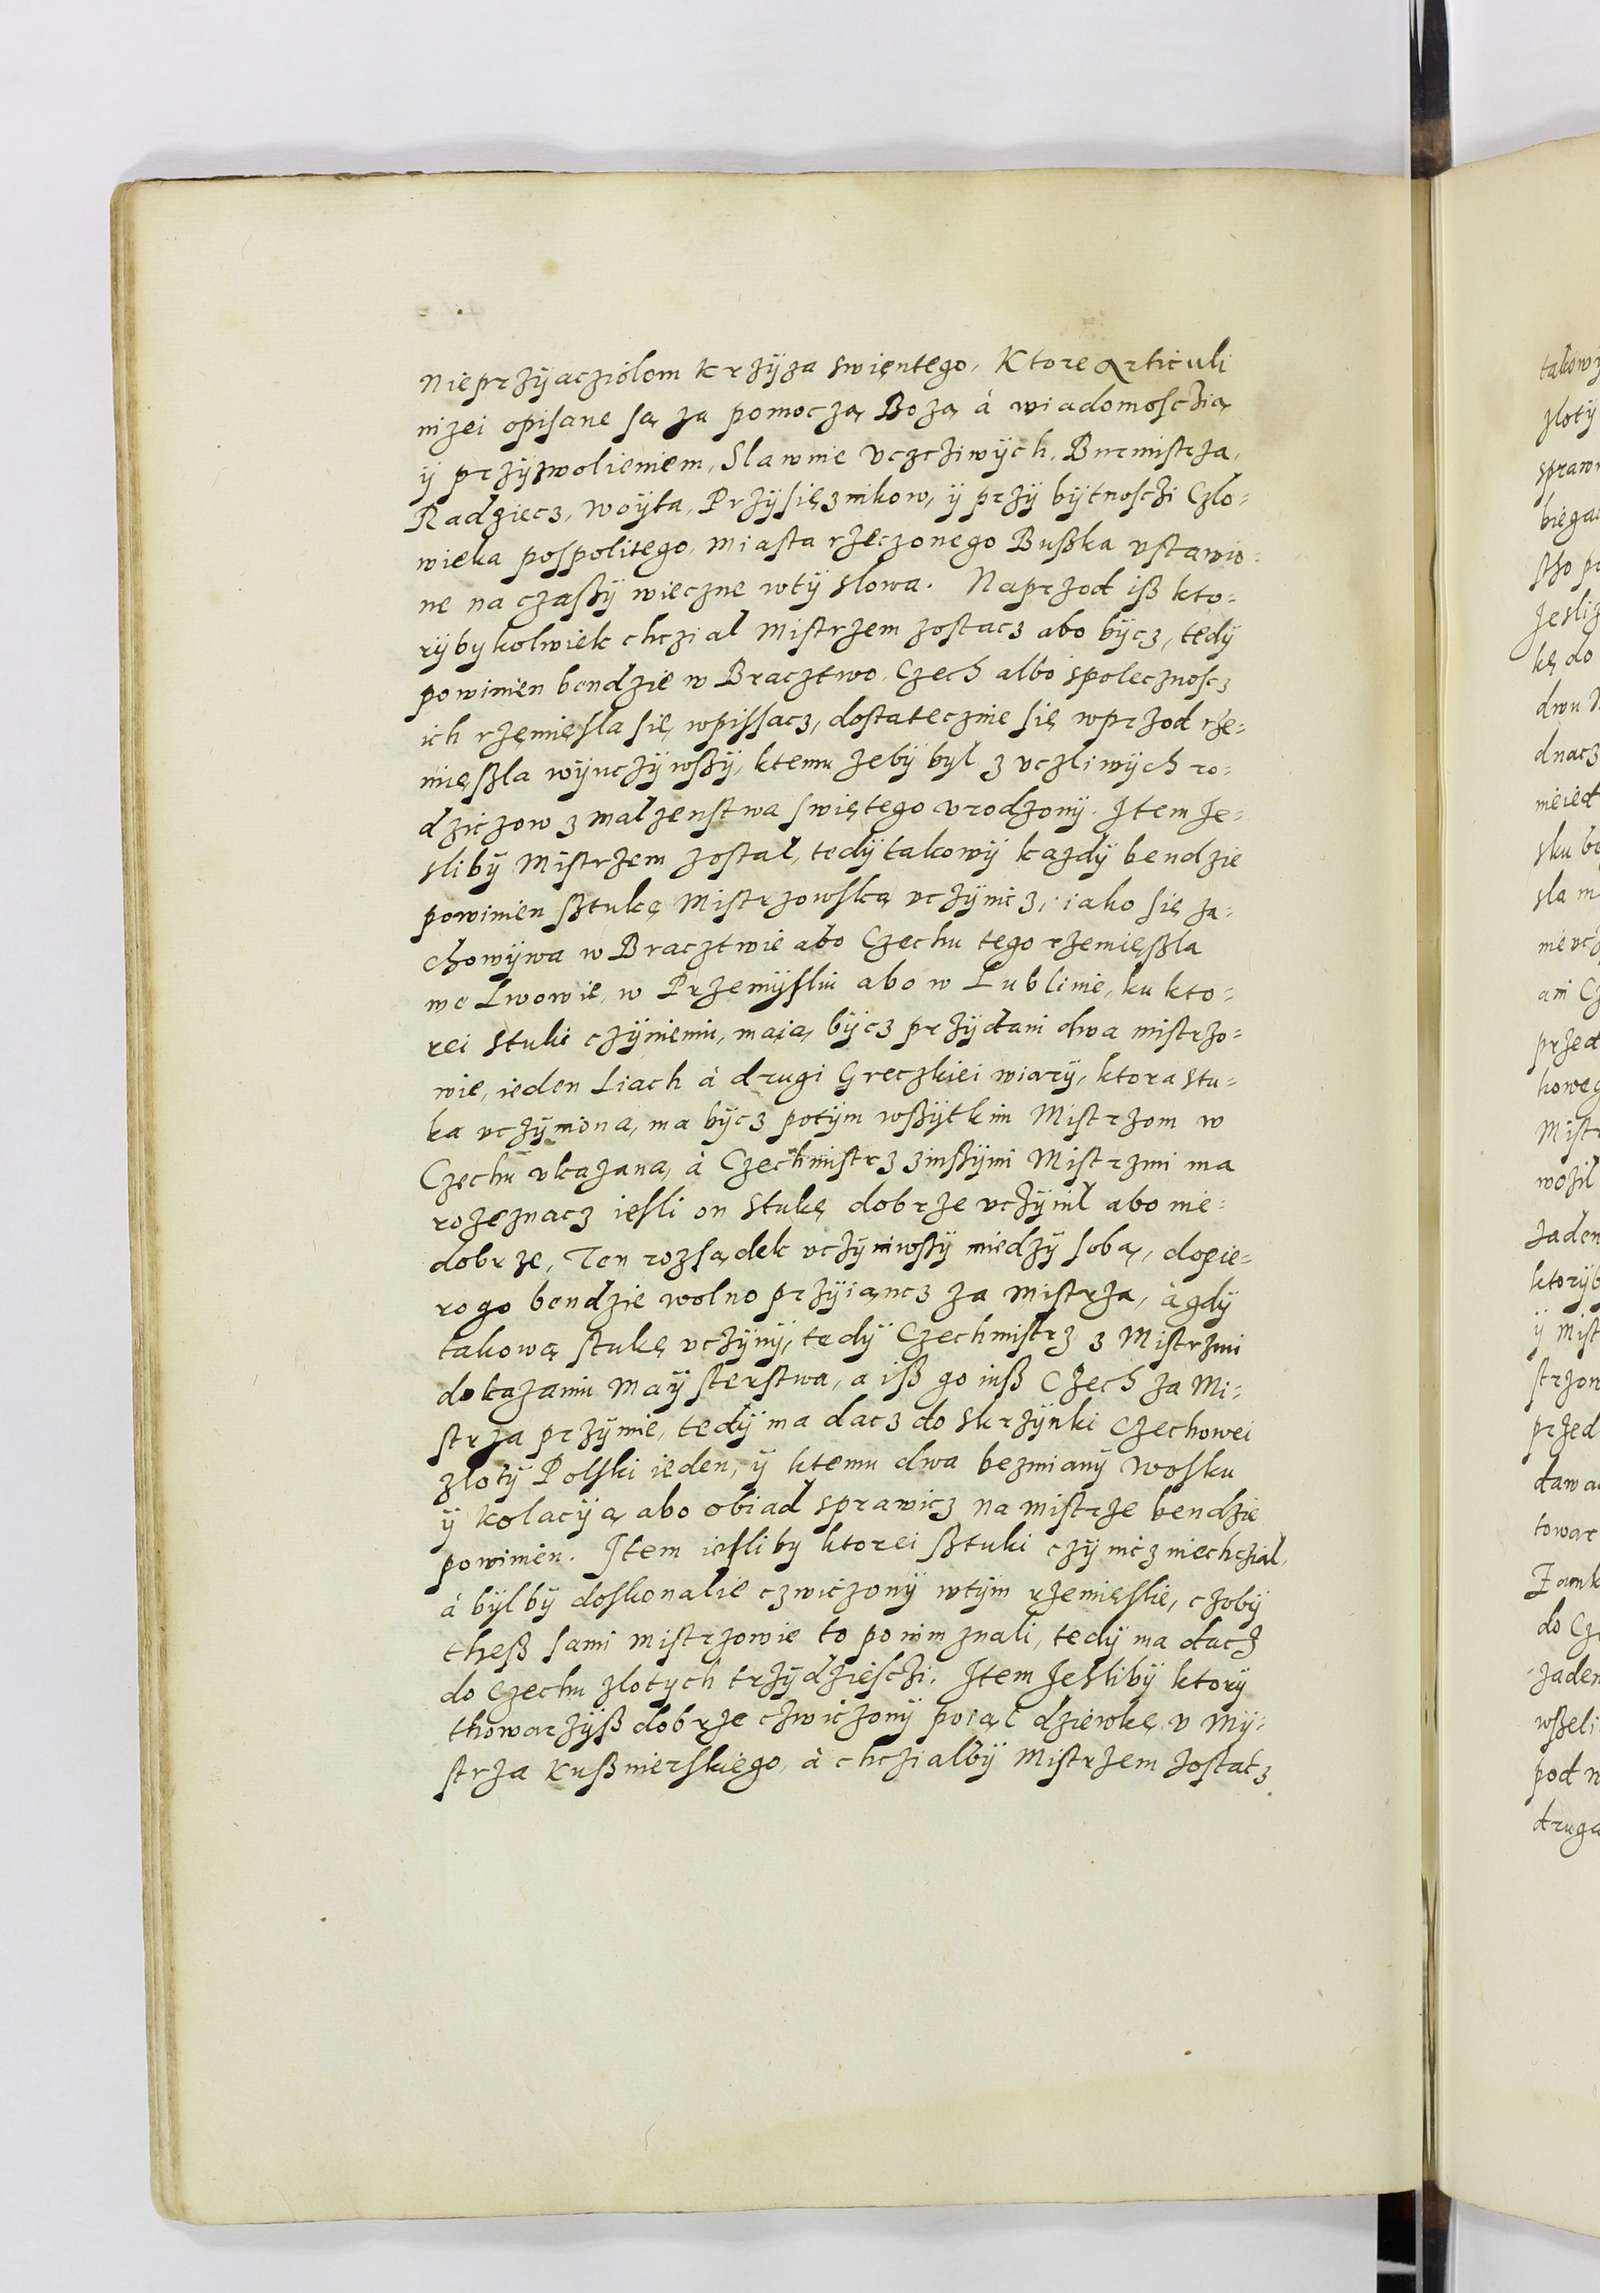 Nieprzÿacziólom krzÿza swiętego, Ktore articuli
nizei opisane są za pomoczą Bozą à wiadomosczią
ÿ przÿzwolieniem, Slawnie vczcziwÿch, Burmistrza,
Radziecz, woÿta, Przÿsięznikow, ÿ przÿ bÿtnosczi Czlo-
wieka pospolitego, miasta rzeczonego Bußka vstawio-
ne na czaßÿ wieczne wtÿ slowa. Naprzod iß kto-
rÿbykolwiek chczial Mistrzem zostacz abo bÿcz, tedÿ
powinien bendzie w Bracztwo Czech albo spolecznoscz
ich rzęmięsla się wpissacz, dostatecznie się wprzod rze-
mięßla wÿuczÿwßÿ, ktemu zebÿ byl z vczliwÿch ro-
dziczow z malzenstwa swiętego vrodzonÿ. Item Je-
slibÿ Mistrzem zostal, tedÿ takowÿ kazdÿ bendzie
powinien ßtukę Mistrzowską vczÿnicz, iako się za-
chowÿwa w Bracztwie abo Czechu tego rzemięßla
we Lwowie, w Przemÿsliu abo w Lublinie, ku kto-
rei stuki czÿnieniu, maią bÿcz przÿdani dwa mistrzo-
wie, ieden Liach à drugi Greczkiei wiarÿ, ktora stu-
ka vczÿniona, ma bÿcz potÿm wßÿtkim Mistrzom w
Czechu vkazana, à Czechmistrz zinßÿmi Mistrzmi ma
rozeznacz iesli on stukę dobrze vczÿnil abo nie-
dobrze, Ten rozsądek vczÿniwßÿ miedzÿ sobą, dopie-
ro go bendzie wolno przÿiąncz za mistrza, à gdÿ
takową stukę vczÿnÿ, tedÿ Czechmistrz z Mistrzmi
dokazaniu Maÿsterstwa, a iß go inß Czech za Mi-
strza przÿmie, tedÿ ma dacz do skrzÿnki Czechowei
zlotÿ Polski ieden, ÿ ktemu dwa bezmianÿ wosku
ÿ Kolacÿą abo obiad sprawicz na mistrze bendzie
powinien. Item iesliby ktorei ßtuki czÿnicz niechczial,
à bÿlbÿ doskonalie czwiczonÿ wtÿm rzemięslie, czobÿ
theß sami mistrzowie to po nim znali, tedÿ ma dacz
do Czechu zlotych trzÿdziesczi. Item Jeslibÿ ktorÿ
thowarzÿß dobrze czwiczonÿ poiąl dziewkę v Mÿ-
strza Kußnierskiego, à chczialbÿ Mistrzem zostacz